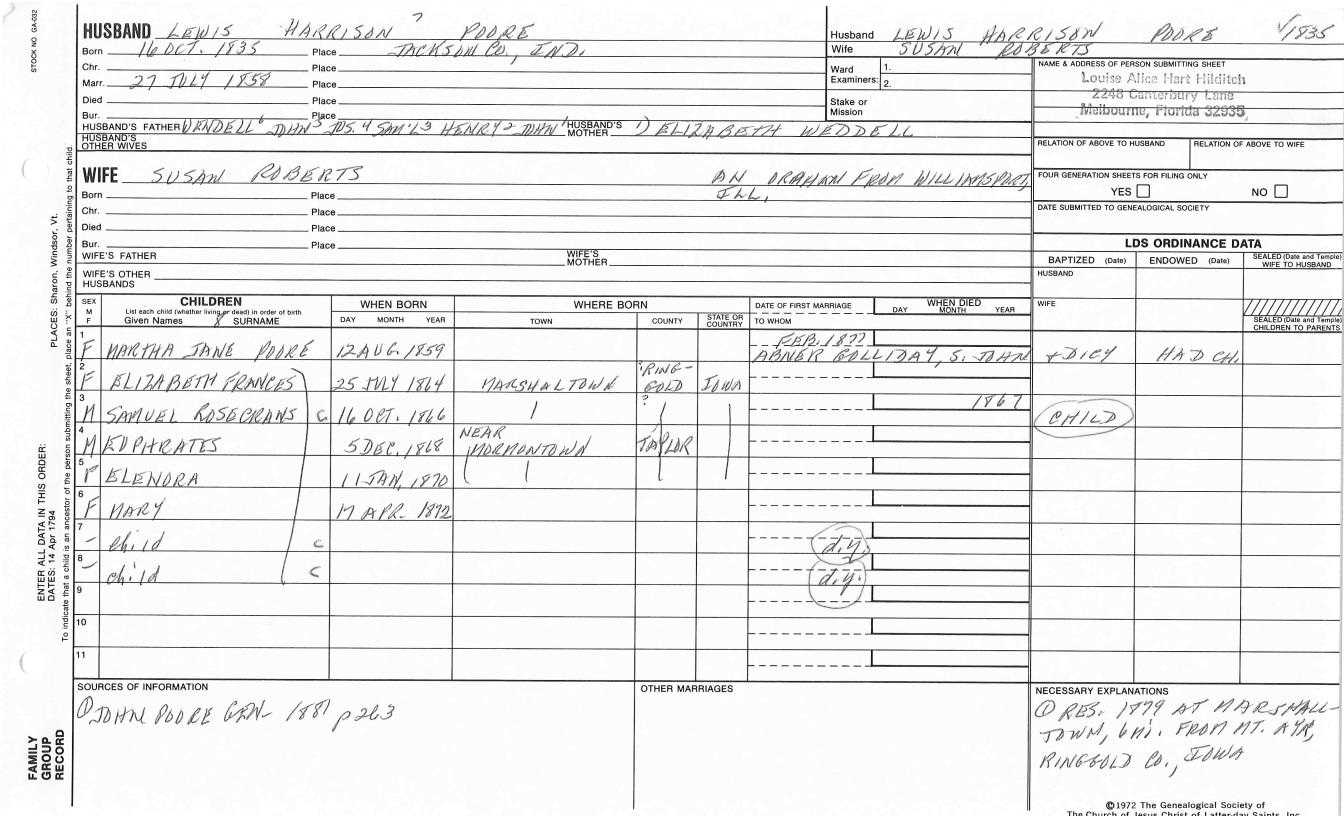 STOCK NO GA-032
HUSBAND LEWIS HARRISON 7 POORE
Born 16 OCT. 1835 Place JACKSON CO., IND.
Chr. Place
Marr. 27 JULY 1858 Place
Died Place
Bur. Place
HUSBAND'S FATHER WENDELL 6 JOHN 5 JOS. 4 SAM'L 3 HENRY 2 JOHN 1 HUSBAND'S MOTHER 1) ELIZABETH WEDDELL
HUSBAND'S OTHER WIVES
Husband LEWIS HARRISON POORE √1835
Wife SUSAN ROBERTS
Ward Examiners: 1.
2.
Stake or Mission
NAME & ADDRESS OF PERSON SUBMITTING SHEET
Louise Alice Hart Hilditch
2248 Canterbury Lane
Melbourne, Florida 32935
RELATION OF ABOVE TO HUSBAND RELATION OF ABOVE TO WIFE
FOUR GENERATION SHEETS FOR FILING ONLY
YES NO
DATE SUBMITTED TO GENEALOGICAL SOCIETY
WIFE SUSAN ROBERTS AN ORAHAN FROM WILLIAMSPORT,
ILL.
Born Place
Chr. Place
Died Place
Bur. Place
WIFE'S FATHER WIFE'S MOTHER
WIFE'S OTHER HUSBANDS
LDS ORDINANCE DATA
BAPTIZED (Date) ENDOWED (Date) SEALED (Date and Temple) WIFE TO HUSBAND
HUSBAND
WIFE
SEALED (Date and Temple) CHILDREN TO PARENTS
SEX M F CHILDREN WHEN BORN WHERE BORN DATE OF FIRST MARRIAGE WHEN DIED
List each child (whether living or dead) in order of birth
Given Names X SURNAME DAY MONTH YEAR TOWN COUNTY STATE OR COUNTRY TO WHOM DAY MONTH YEAR
1 F MARTHA JANE POORE 12 AUG. 1859 FEB. 1877
ABNER GOLLIDAY, S. JOHN + DICY HAD CH.
2 F ELIZABETH FRANCES 25 JULY 1864 MARSHALTOWN ?RING-GOLD ? IOWA
3 M SAMUEL ROSECRANS C 16 OCT. 1866 1867 CHILD
4 M EUPHRATES 5 DEC. 1868 NEAR MORMONTOWN TAYLOR
5 F ELENORA 11 JAN. 1870
6 F MARY 17 APR. 1872
7 - child C d.y.
8 - child C d.y.
9
10
11
SOURCES OF INFORMATION
① JOHN POORE GEN- 1881 p263
OTHER MARRIAGES
NECESSARY EXPLANATIONS
① RES. 1879 AT MARSHALL-
TOWN, 6 MI. FROM MT. AYR,
RINGGOLD CO., IOWA
©1972 The Genealogical Society of
The Church of Jesus Christ of Latter-day Saints, Inc.
PLACES: Sharon, Windsor, Vt.
To indicate that a child is an ancestor of the person submitting the sheet, place an "X" behind the number pertaining to that child.
ENTER ALL DATA IN THIS ORDER:
DATES: 14 Apr 1794
FAMILY
GROUP
RECORD